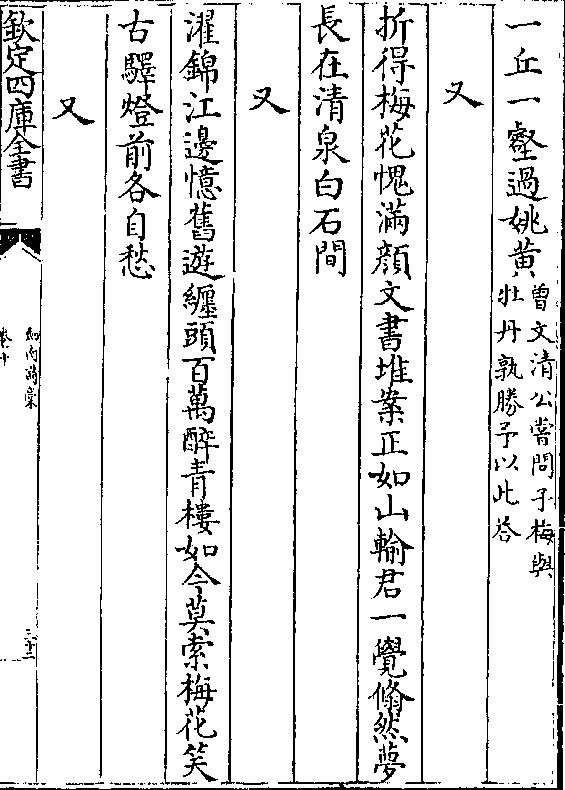 一丘一壑過姚黄曾文清公嘗問予梅與
牡丹孰勝予以此答
又
折得梅花愧滿顔文書堆案正如山輸君一覺翛然夢
長在清泉白石間
又
濯錦江邊憶舊遊纒頭百萬醉青樓如今莫索梅花笑
古驛燈前各自愁
又
欽定四庫全書
劒南詩槀
卷十
三十二